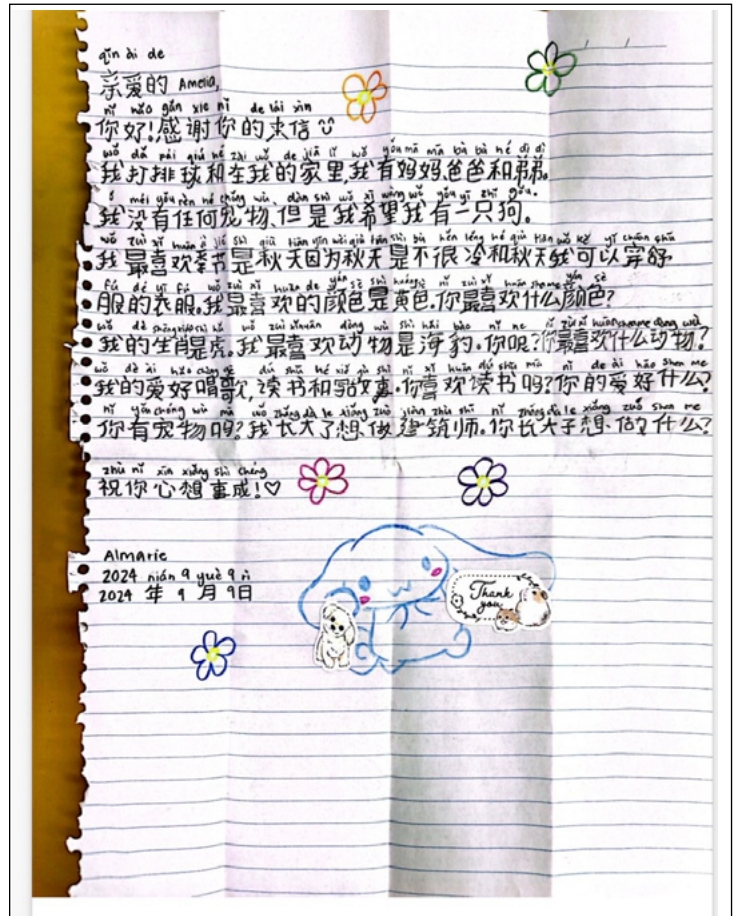 qīn ài de
亲爱的 Amelia,
nǐ hǎo gǎn xie nǐ de lái xìn
你好!感谢你的来信
wǒ dǎ pái qiú hé zài wǒ de jiā lǐ wǒ yǒu mā mā bà bà hé dì di
我打排球和在我的家里,我有妈妈爸爸和弟弟。
méi yǒu rèn hé chǒng wù, dàn shì wǒ xī wàng wǒ yǒu yī zhī gǒu.
我没有任何宠物,但是我希望我有一只狗。
wǒ zuì xǐ huān jì jié shì qiū tiān yīn wèi qiū tiān shì bù hěn lěng hé qiū tiān wǒ kě yǐ chuān shū
我最喜欢季节是秋天因为秋天是不很冷和秋天我可以穿舒
fú dé yī fú wǒ zuì xǐ huān de yán sè shì huáng sè nǐ zuì xǐ huān shen me yán sè
服的衣服。我最喜欢的颜色是黄色.你最喜欢什么颜色?
wǒ de shēng xiào shì hǔ wǒ zuì xǐ huān dòng wù shì hǎi bào nǐ ne nǐ zuì xǐ huān shen me dòng wù
我的生肖是虎。我最喜欢动物是海豹.你呢?你最喜欢什么动物?
wǒ dè ài hào chàng gē dú shū hé xiě gù shì nǐ xǐ huān dú shū mā nǐ de ài hào shen me
我的爱好唱歌,读书和写故事.你喜欢读书吗?你的爱好什么?
nǐ yǒu chǒng wù mā wǒ zhǎng dà le xiǎng zuò jiàn zhù shī nǐ zhǎng dà le xiǎng zuò shen me
你有宠物吗?我长大了想做建筑师.你长大了想做什么?
zhù nǐ xīn xiǎng shì chéng
祝你心想事成!♡
Almarie
2024 nián 9 yuè 9 rì
2024 年 9 月 9日
Thank
you